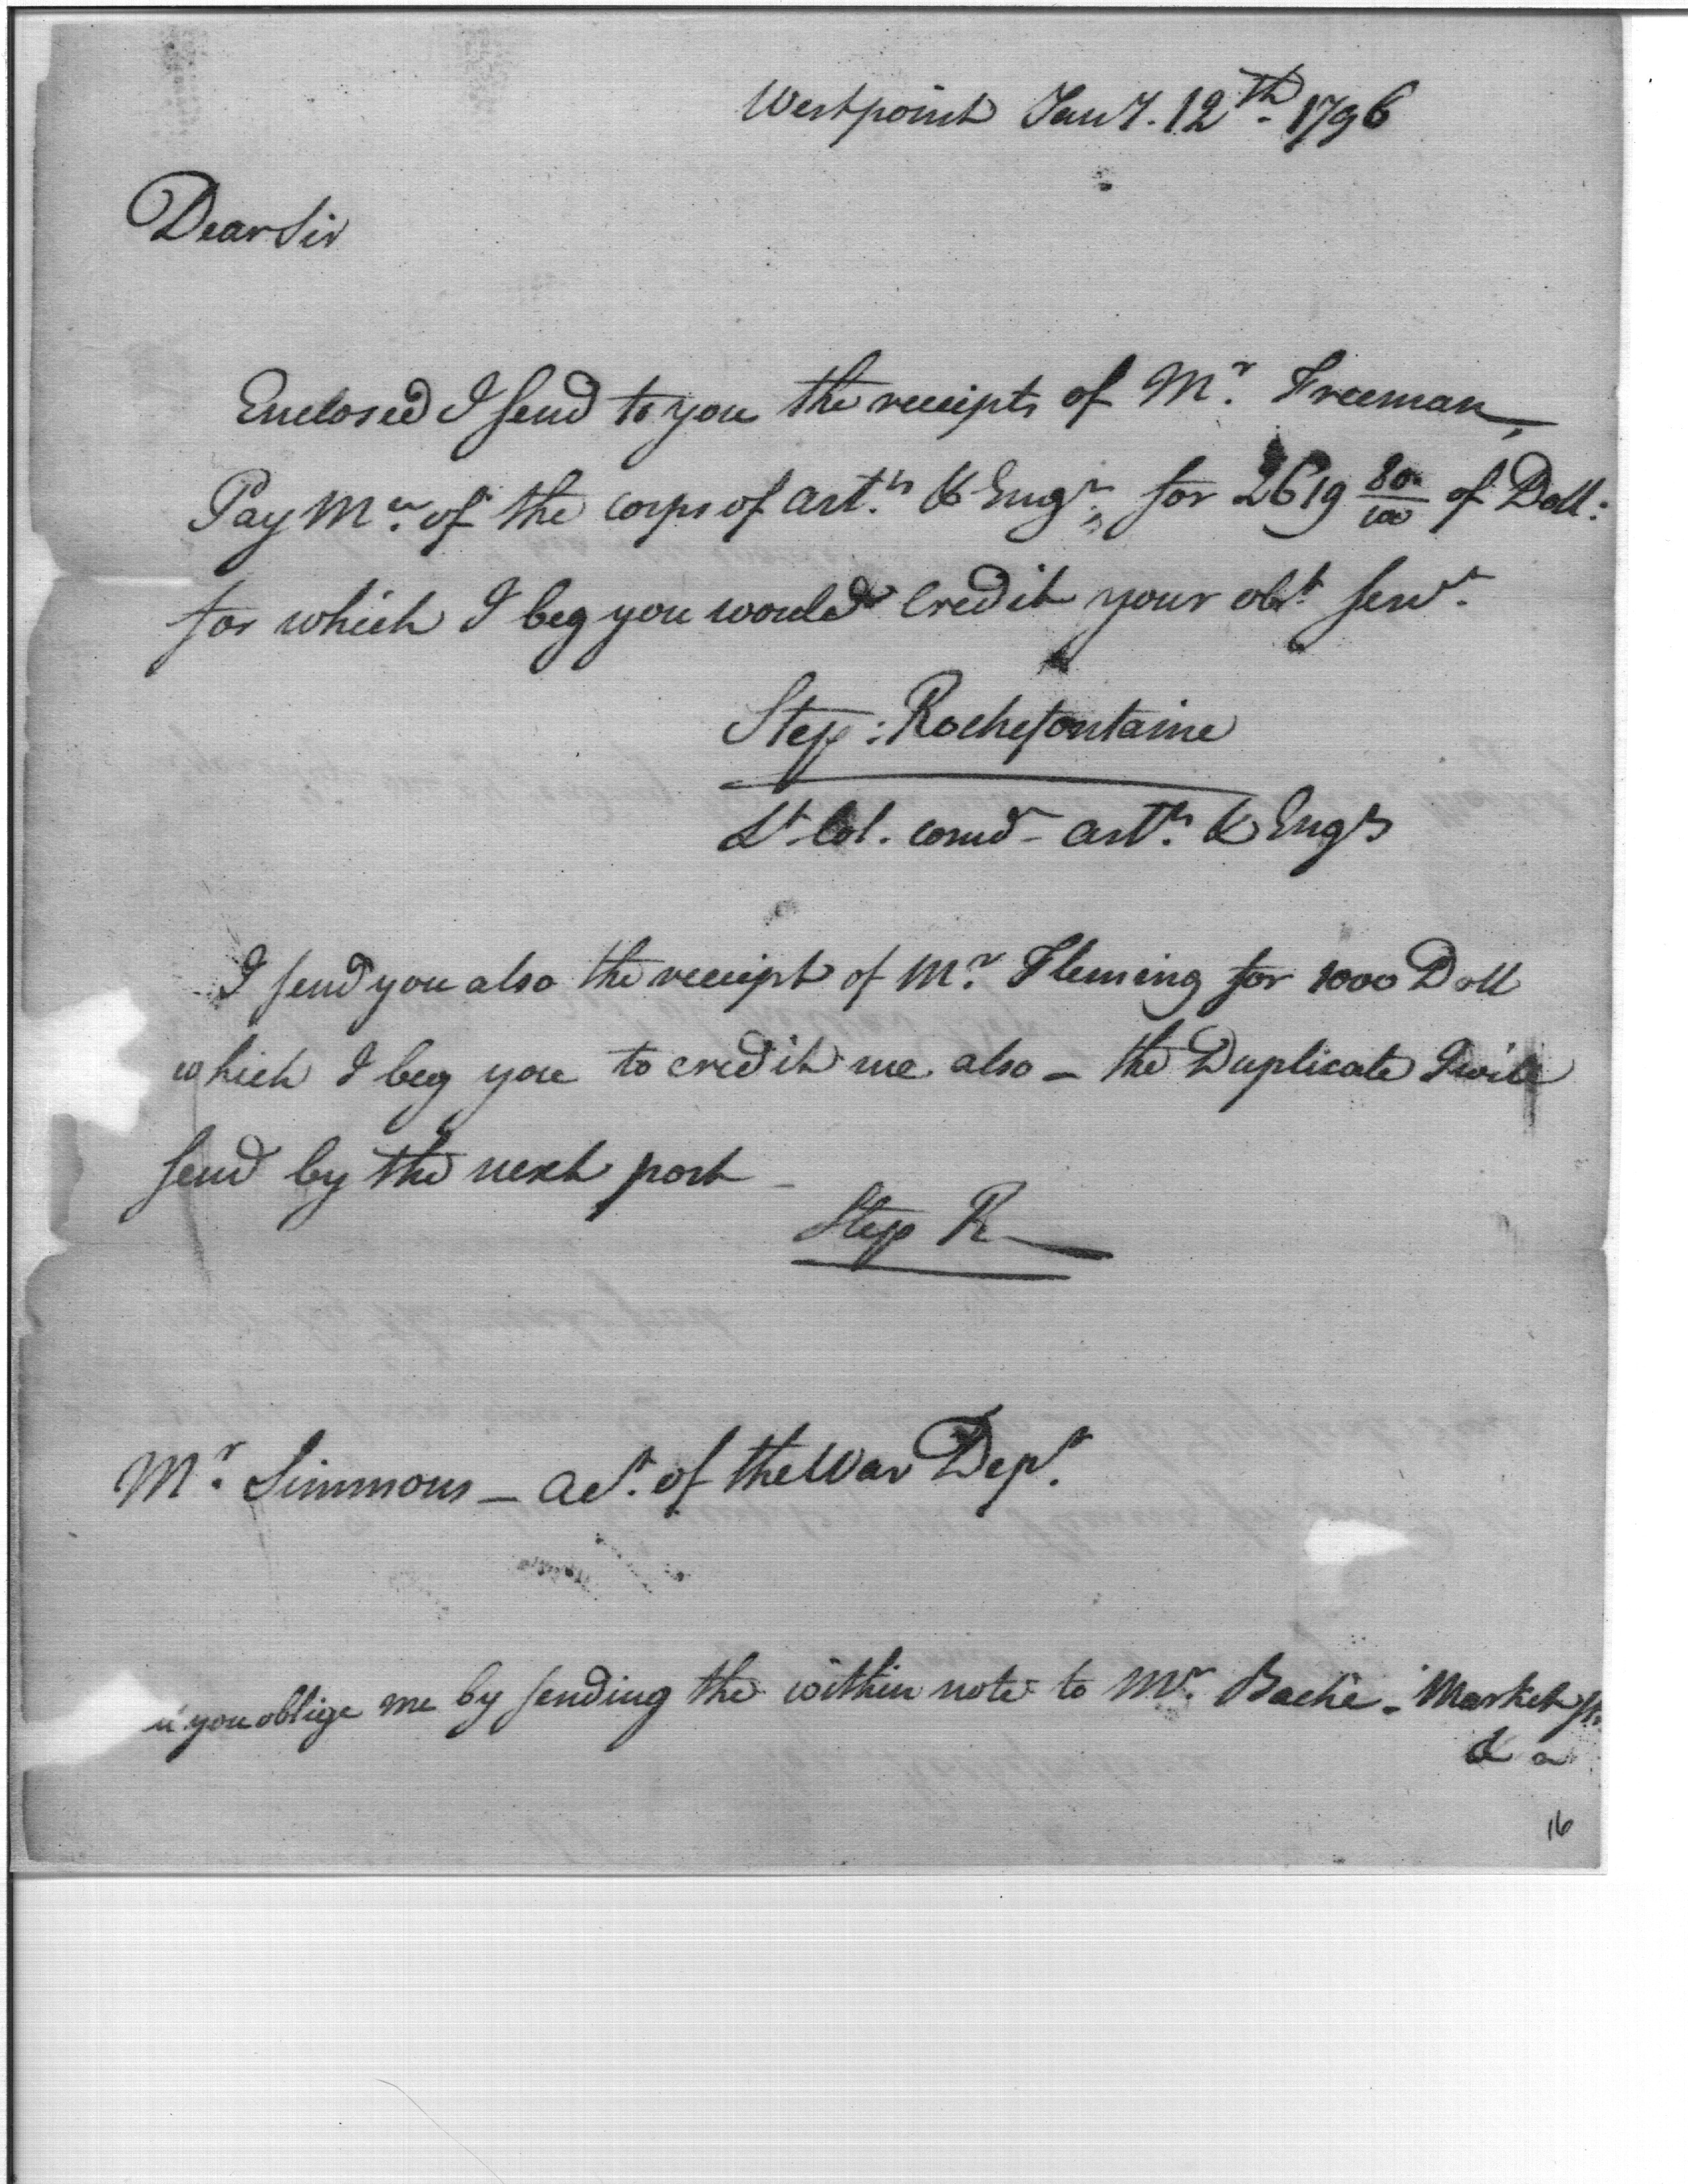 Westpoint Jany. 12th. 1796
Dear Sir
Enclosed I send to you the receipts of Mr. Freeman,
Pay Mr. of the corps of artrs. & Engrs. for 2619 80/100 of Doll:
for which I beg you would credit your obt. servt.
Step: Rochefontaine
Lt. Col. comdt artrs. & Engrs
I send you also the receipt of Mr. Fleming for 1000 Doll
which I beg you to credit me also - the Duplicate I will
send by the next post -
Step R
Mr. Simmons - act. of the War Dept.
you oblige me by sending the within note to Mr. Bache - Market st.
16